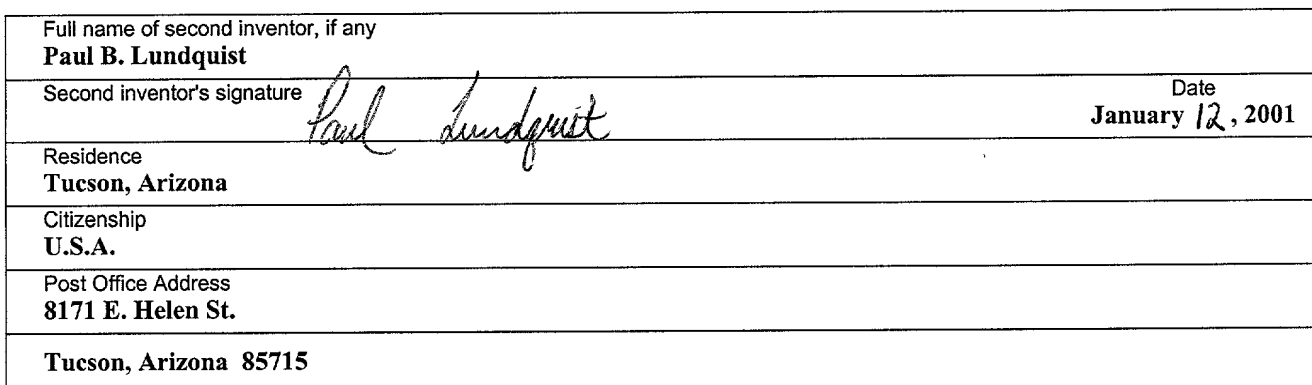 Full name of second inventor, if any
Paul B. Lundquist
Second inventor's signature Paul Lundquist
Date
January 12, 2001
Residence
Tucson, Arizona
Citizenship
U.S.A.
Post Office Address
8171 E. Helen St.
Tucson, Arizona 85715